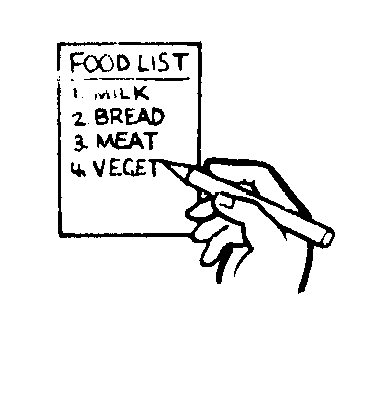 FOOD LIST
1. MILK
2. BREAD
3. MEAT
4. VEGET